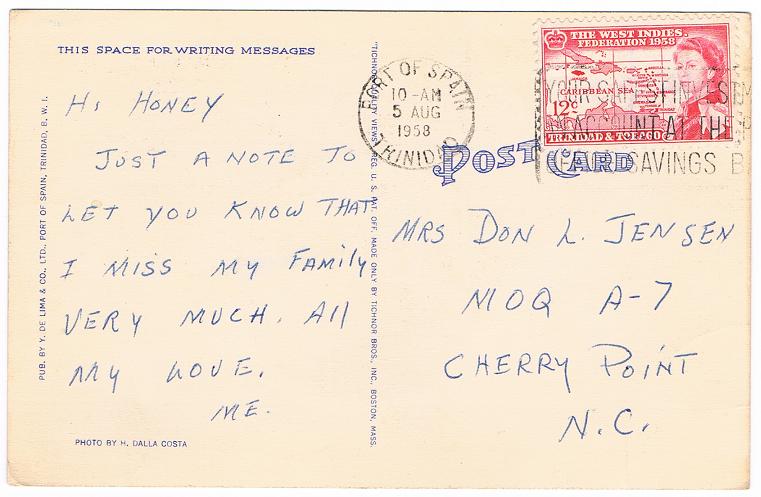 THIS SPACE FOR WRITING MESSAGES
HI HONEY
JUST A NOTE TO
LET YOU KNOW THAT
I MISS MY FAMILY
VERY MUCH. All
MY LOVE.
ME.
PHOTO BY H. DALLA COSTA
PUB. BY Y. DE LIMA & CO., LTD., PORT OF SPAIN, TRINIDAD, B. W. I.
"TICHNOR QUALITY VIEWS," REG. U. S. PAT. OFF. MADE ONLY BY TICHNOR BROS., INC., BOSTON, MASS.
PORT OF SPAIN
10-AM
5 AUG
1958
TRINIDAD
THE WEST INDIES
FEDERATION 1958
CARIBBEAN SEA
12c
TRINIDAD & TOBAGO
YOUR INVEST
ACCOUNT AT THE P
SAVINGS B
POST CARD
MRS DON L. JENSEN
MOQ A-7
CHERRY POINT
N.C.